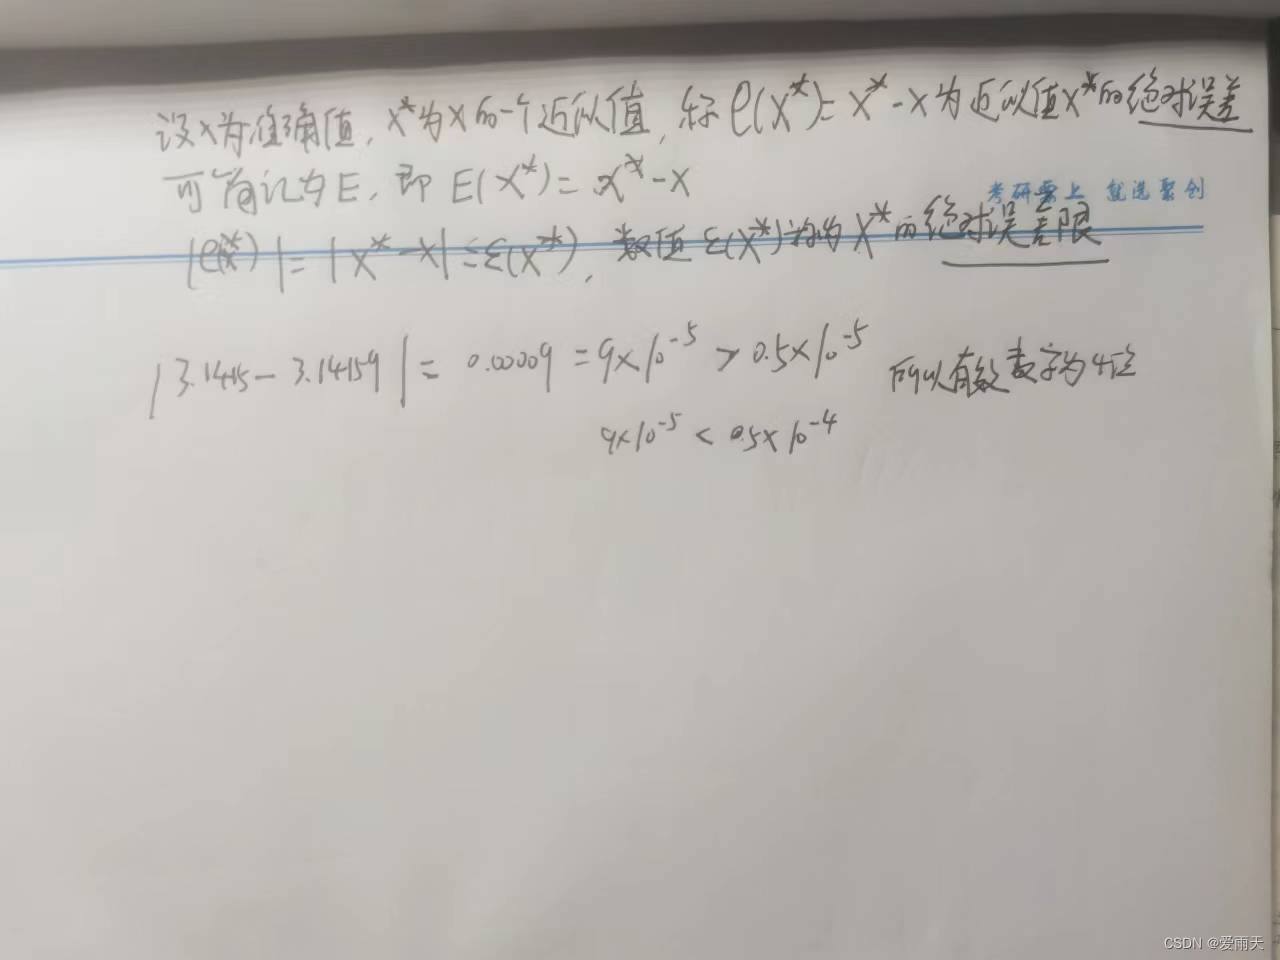 设x为准确值，x*为x的一个近似值，称e(x*)=x*-x为近似值x*的绝对误差
可简记为E，即E(x*)=x*-x
考研要上 就选聚创
|e(x*)|=|x*-x|≤ε(x*)，数值ε(x*)称为x*的绝对误差限
|3.1415-3.14159|=0.00009=9×10⁻⁵>0.5×10⁻⁵ 所以有效数字为4位
9×10⁻⁵<0.5×10⁻⁴
CSDN @爱雨天